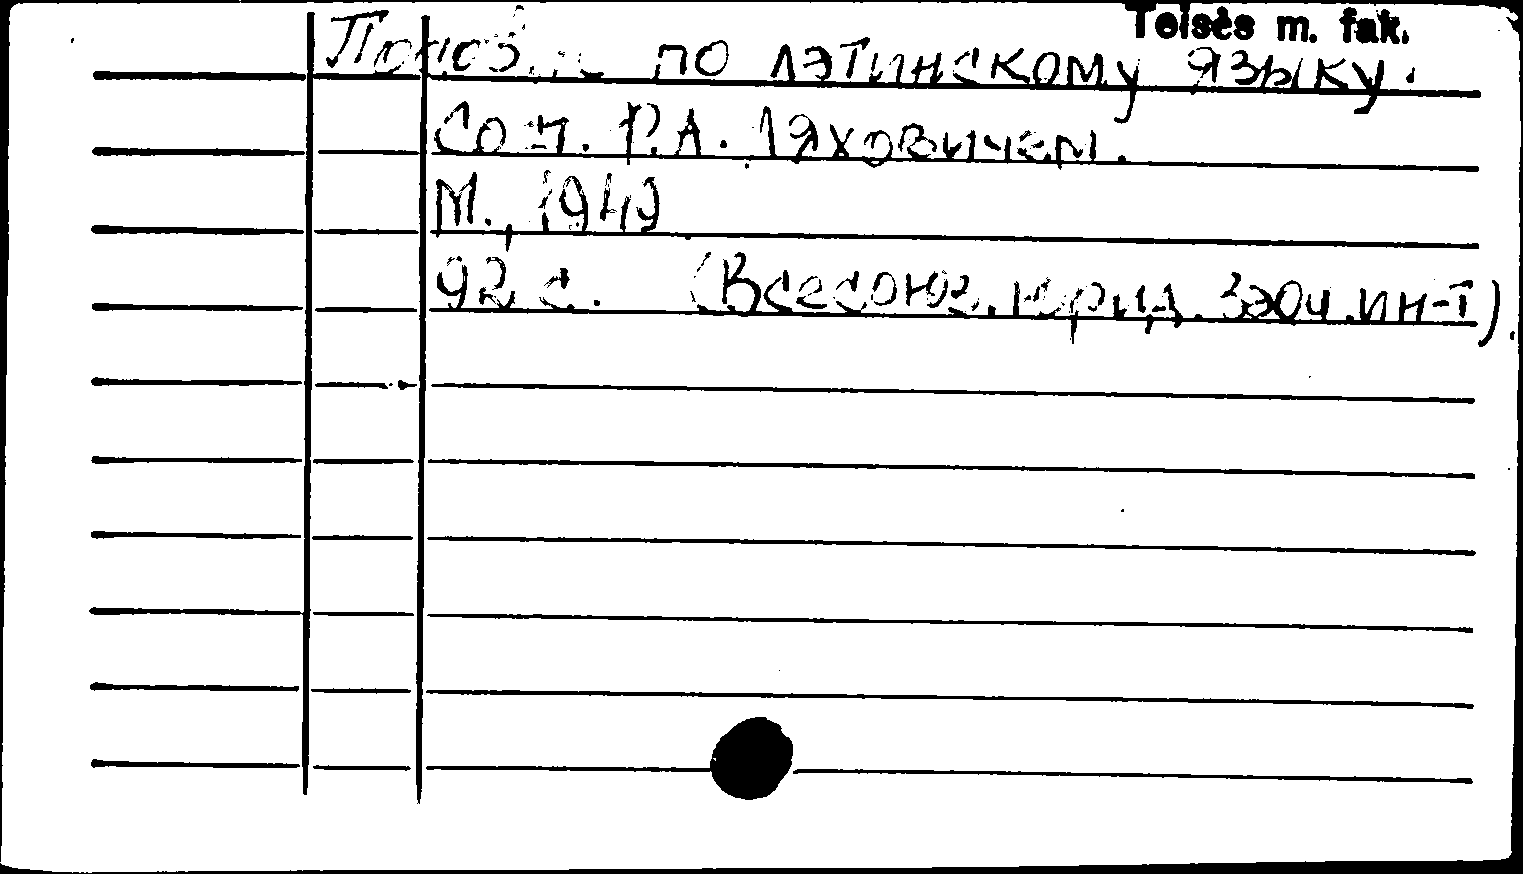 Teisės m. fak.
по латинскому языку.
Сост. Р.А. Ляховичем.
М., 1949
92 с. (Всесоюз. юрид. заоч. ин-т).